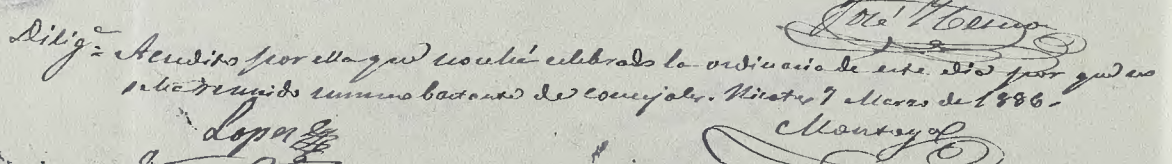 José
Diligª Acredito por ella que no se há celebrado la ordinaria de este dia por que no
se ha reunido numero bastante de concejales. 7 Marzo de 1886.-
Lopez Montoya